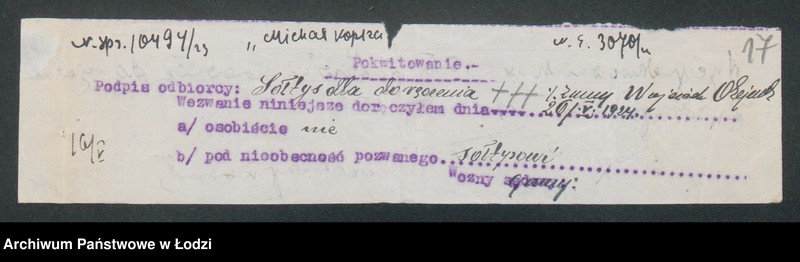 N. spr. 10494/23 „Michał Kopka N. E. 3070/ 17
Pokwitowanie.-
Podpis odbiorcy: Sołtys dla doręczenia +++ Wojciech Olejnik
Wezwanie niniejsze doręczyłem dnia 20/V. 1924.
a/ osobiście nie
16/V
b/ pod nieobecność pozwanego Sołtysowi
Woźny gminy:
Archiwum Państwowe w Łodzi